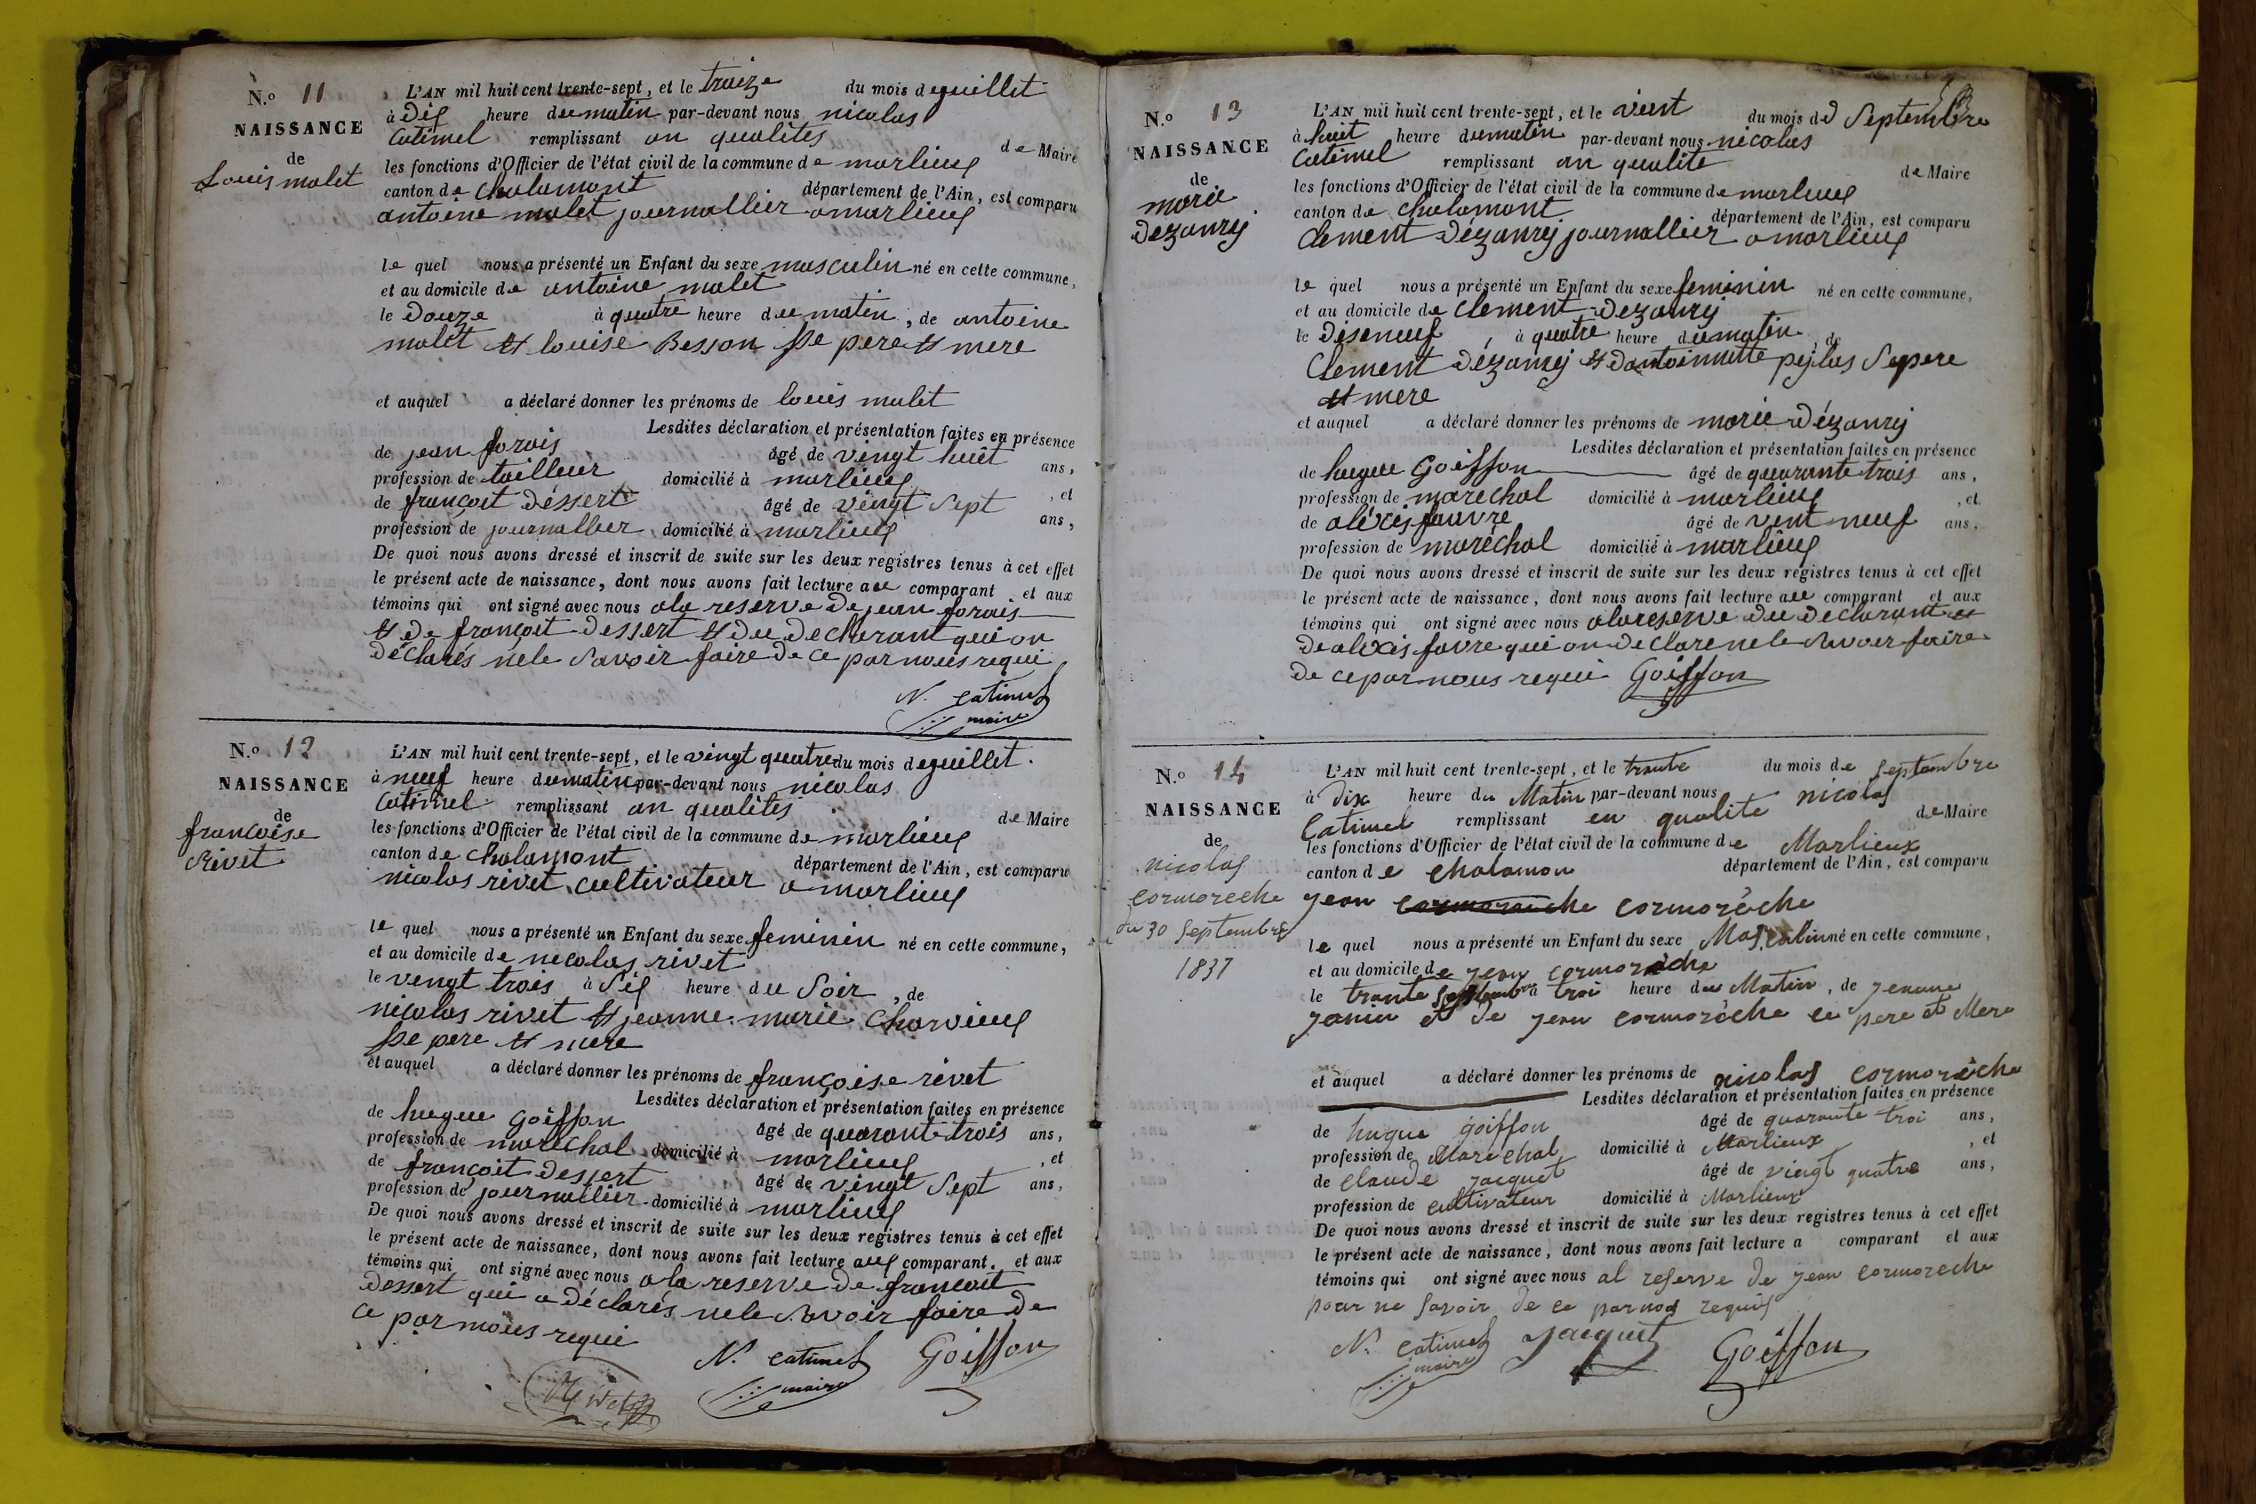 N.o 11
NAISSANCE
de
Louis malet
L'AN mil huit cent trente-sept, et le traize du mois de guillet
à Dix heure du matin par-devant nous nicolas
Catimel remplissant an qualites de Maire
les fonctions d'Officier de l'état civil de la commune de marlieux
canton de Chalamont département de l'Ain, est comparu
antoine malet journallier a marlieux
le quel nous a présenté un Enfant du sexe masculin né en cette commune,
et au domicile de antoine malet
le Douze à quatre heure du matin, de antoine
malet et louise Besson se pere et mere
et auquel a déclaré donner les prénoms de louis malet
Lesdites déclaration et présentation faites en présence
de jean forais âgé de vingt huit ans,
profession de tailleur domicilié à marlieux, et
de françoit déssert âgé de vingt Sept ans,
profession de journallier domicilié à marlieux
De quoi nous avons dressé et inscrit de suite sur les deux registres tenus à cet effet
le présent acte de naissance, dont nous avons fait lecture au comparant et aux
témoins qui ont signé avec nous ala reserve de jean forais
et de françoit dessert et du declarant qui on
déclarés nele Savoir faire de ce par nous requi
N. catimel
maire
N.o 12
NAISSANCE
de
francoise
Rivet
L'AN mil huit cent trente-sept, et le vingt quatre du mois de guillet.
à neuf heure du matin par-devant nous nicolas
Catimel remplissant an qualités de Maire
les fonctions d'Officier de l'état civil de la commune de marlieux
canton de Chalamont département de l'Ain, est comparu
nicolas rivet cultivateur a marlieux
le quel nous a présenté un Enfant du sexe feminin né en cette commune,
et au domicile de necolas rivet
le vengt trois à Six heure du Soir, de
nicolas rivet et jeanne marie Charvieux
se pere et mere
et auquel a déclaré donner les prénoms de françoise rivet
Lesdites déclaration et présentation faites en présence
de hugue Goiffon âgé de quarante trois ans,
profession de maréchal domicilié à marlieux, et
de françoit dessert âgé de vingt Sept ans,
profession de journallier domicilié à marlieux
De quoi nous avons dressé et inscrit de suite sur les deux registres tenus à cet effet
le présent acte de naissance, dont nous avons fait lecture aux comparant. et aux
témoins qui ont signé avec nous ala reserve de francoit
dessert qui a déclarés nele Savoir faire de
ce par nous requi
N. catimel Goiffon
maire
N.o 13
NAISSANCE
de
marie
Dezanry
L'AN mil huit cent trente-sept, et le vient du mois de Septembre
à huit heure du matin par-devant nous nicolas
Catimel remplissant an qualite de Maire
les fonctions d'Officier de l'état civil de la commune de marlieux
canton de Chalamont département de l'Ain, est comparu
Clement Dézanry journallier a marlieux
le quel nous a présenté un Enfant du sexe feminin né en cette commune,
et au domicile de Clement Dezanry
le Diseneuf à quatre heure du matin, de
Clement Dézanry et Dantoinnette peylas Se pere
et mere
et auquel a déclaré donner les prénoms de marie Dézanry
Lesdites déclaration et présentation faites en présence
de hugue Goiffon âgé de quarante trois ans,
profession de marechal domicilié à marlieux, et
de aléxis fauvre âgé de vent neuf ans,
profession de maréchal domicilié à marlieux
De quoi nous avons dressé et inscrit de suite sur les deux registres tenus à cet effet
le présent acte de naissance, dont nous avons fait lecture au comparant et aux
témoins qui ont signé avec nous alareserve du declarant et
de alexis favre qui on declare nele Savoir faire
de ce par nous requi Goiffon
N.o 14
NAISSANCE
de
nicolas
cormoreche
du 30 Septembre
1837
L'AN mil huit cent trente-sept, et le trante du mois de Septembre
à Dix heure du Matin par-devant nous nicolas
Catimel remplissant en qualite de Maire
les fonctions d'Officier de l'état civil de la commune de Marlieux
canton de Chalamon département de l'Ain, est comparu
jean cormorauche cormorèche
le quel nous a présenté un Enfant du sexe Mascalin né en cette commune,
et au domicile de jean cormorèche
le trante septembre à troi heure du Matin, de jeanne
janin et de jean cormorèche ce pere et Mere
et auquel a déclaré donner les prénoms de nicolas cormorèche
Lesdites déclaration et présentation faites en présence
de hugue goiffon âgé de quarante troi ans,
profession de Marechal domicilié à Marlieux, et
de claude jacquet âgé de vingt quatre ans,
profession de cultivateur domicilié à Marlieux
De quoi nous avons dressé et inscrit de suite sur les deux registres tenus à cet effet
le présent acte de naissance, dont nous avons fait lecture a comparant et aux
témoins qui ont signé avec nous al reserve de jean cormoreche
pour ne savoir de ce par nos requis
N. catimel jacquet Goiffon
maire